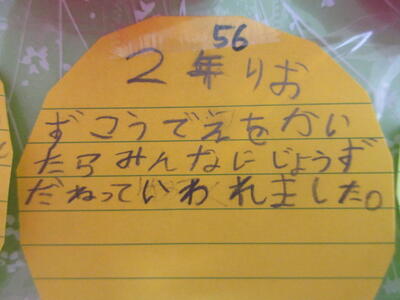 56
2年 りお
ずこうでえをかい
たらみんなにじょうず
だねっていわれました。